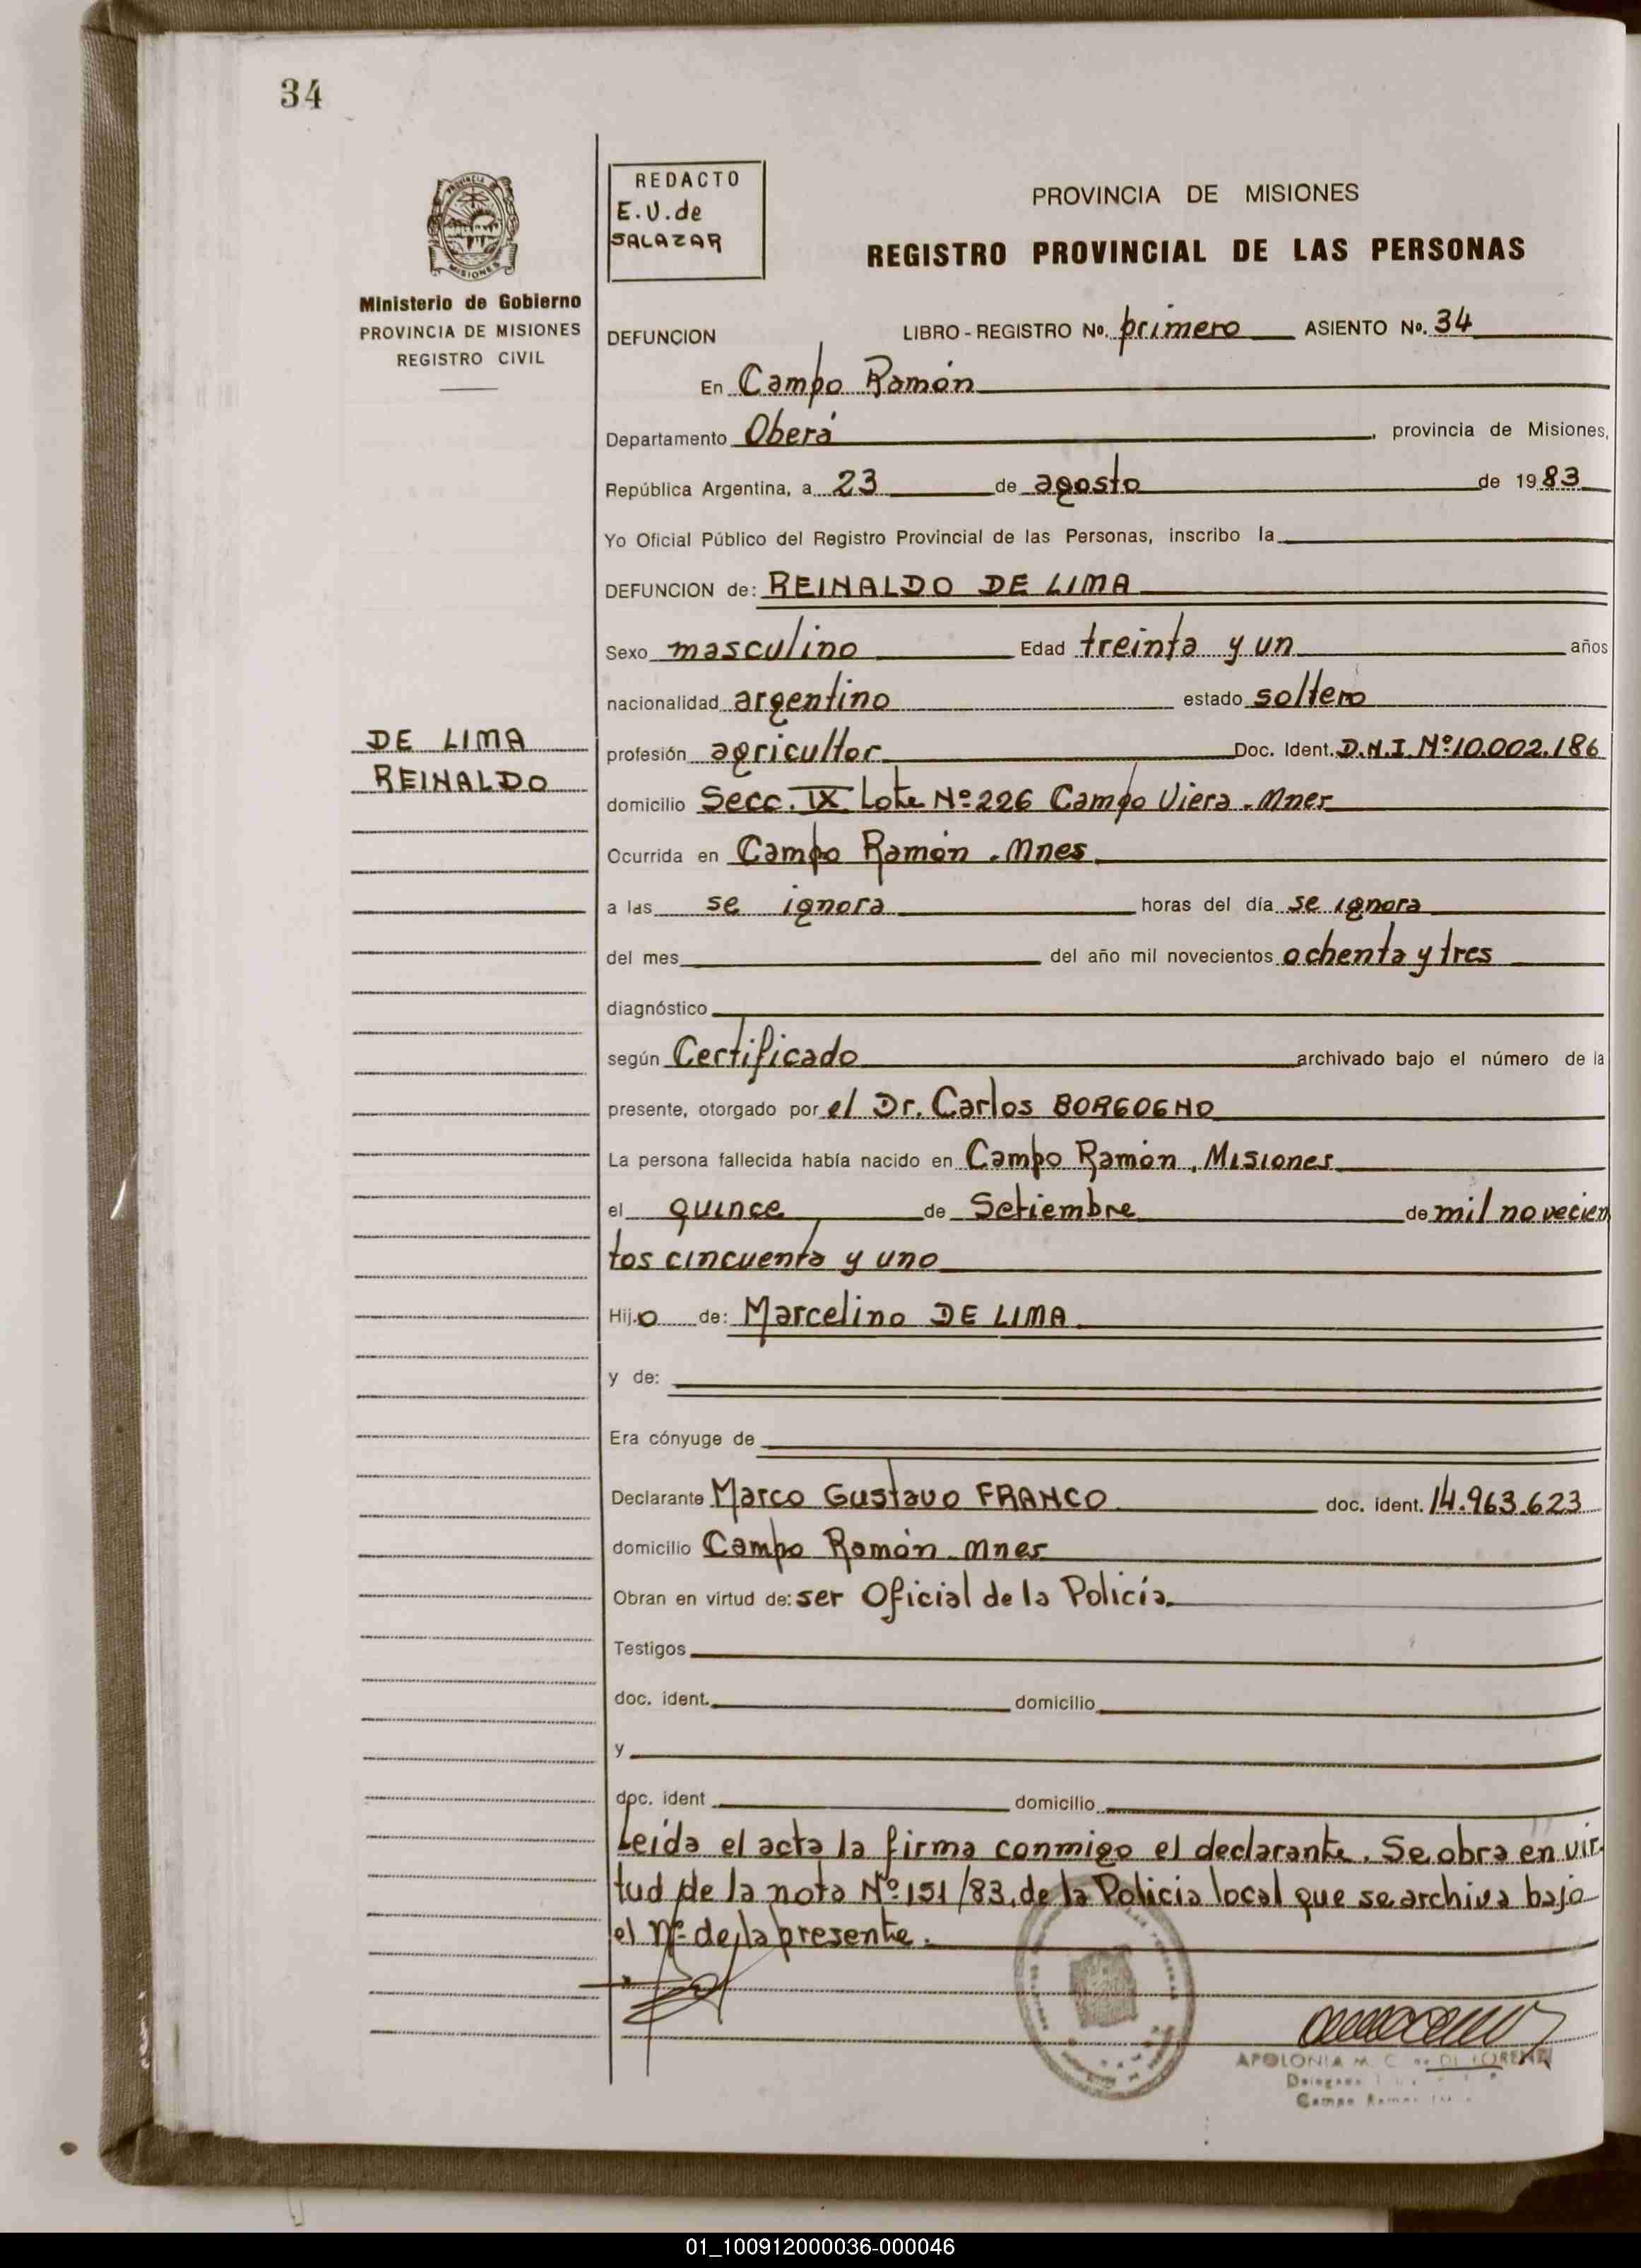 34
PROVINCIA DE
MISIONES
Ministerio de Gobierno
PROVINCIA DE MISIONES
REGISTRO CIVIL
REDACTO
E.V. de
SALAZAR
PROVINCIA DE MISIONES
REGISTRO PROVINCIAL DE LAS PERSONAS
DEFUNCION LIBRO - REGISTRO Nº. primero ASIENTO Nº. 34
En Campo Ramón
Departamento Oberá, provincia de Misiones,
República Argentina, a 23 de agosto de 1983
Yo Oficial Público del Registro Provincial de las Personas, inscribo la
DEFUNCION de: REINALDO DE LIMA
Sexo masculino Edad treinta y un años
nacionalidad argentino estado soltero
DE LIMA
REINALDO
profesión agricultor Doc. Ident. D.N.I. Nº 10.002.186
domicilio Secc. IX Lote Nº 226 Campo Viera - Mnes
Ocurrida en Campo Ramón - Mnes
a las se ignora horas del día se ignora
del mes del año mil novecientos ochenta y tres
diagnóstico
según Certificado archivado bajo el número de la
presente, otorgado por el Dr. Carlos BORGOGNO
La persona fallecida había nacido en Campo Ramón, Misiones
el quince de Setiembre de mil novecien
tos cincuenta y uno
Hijo de: Marcelino DE LIMA
y de:
Era cónyuge de
Declarante Marco Gustavo FRANCO doc. ident. 14.963.623
domicilio Campo Ramón - Mnes
Obran en virtud de: ser Oficial de la Policía.
Testigos
doc. ident. domicilio
y
doc. ident domicilio
Leída el acta la firma conmigo el declarante. Se obra en vir-
tud de la nota Nº 151/83, de la Policia local que se archiva bajo
el Nº de la presente.
APOLONIA M. C. DI LORENZ
Campo Ramon
01_100912000036-000046